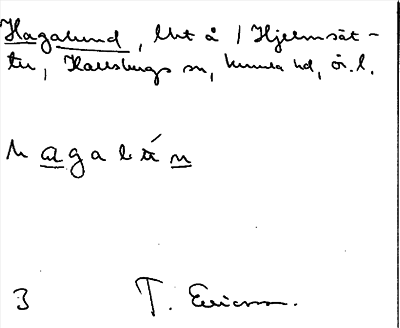 Hagalund, lht å / Hjelmsät-
ter, Hallsbergs sn, Kumla hd, ör. l.
hagalún
3 T. Ericsson.